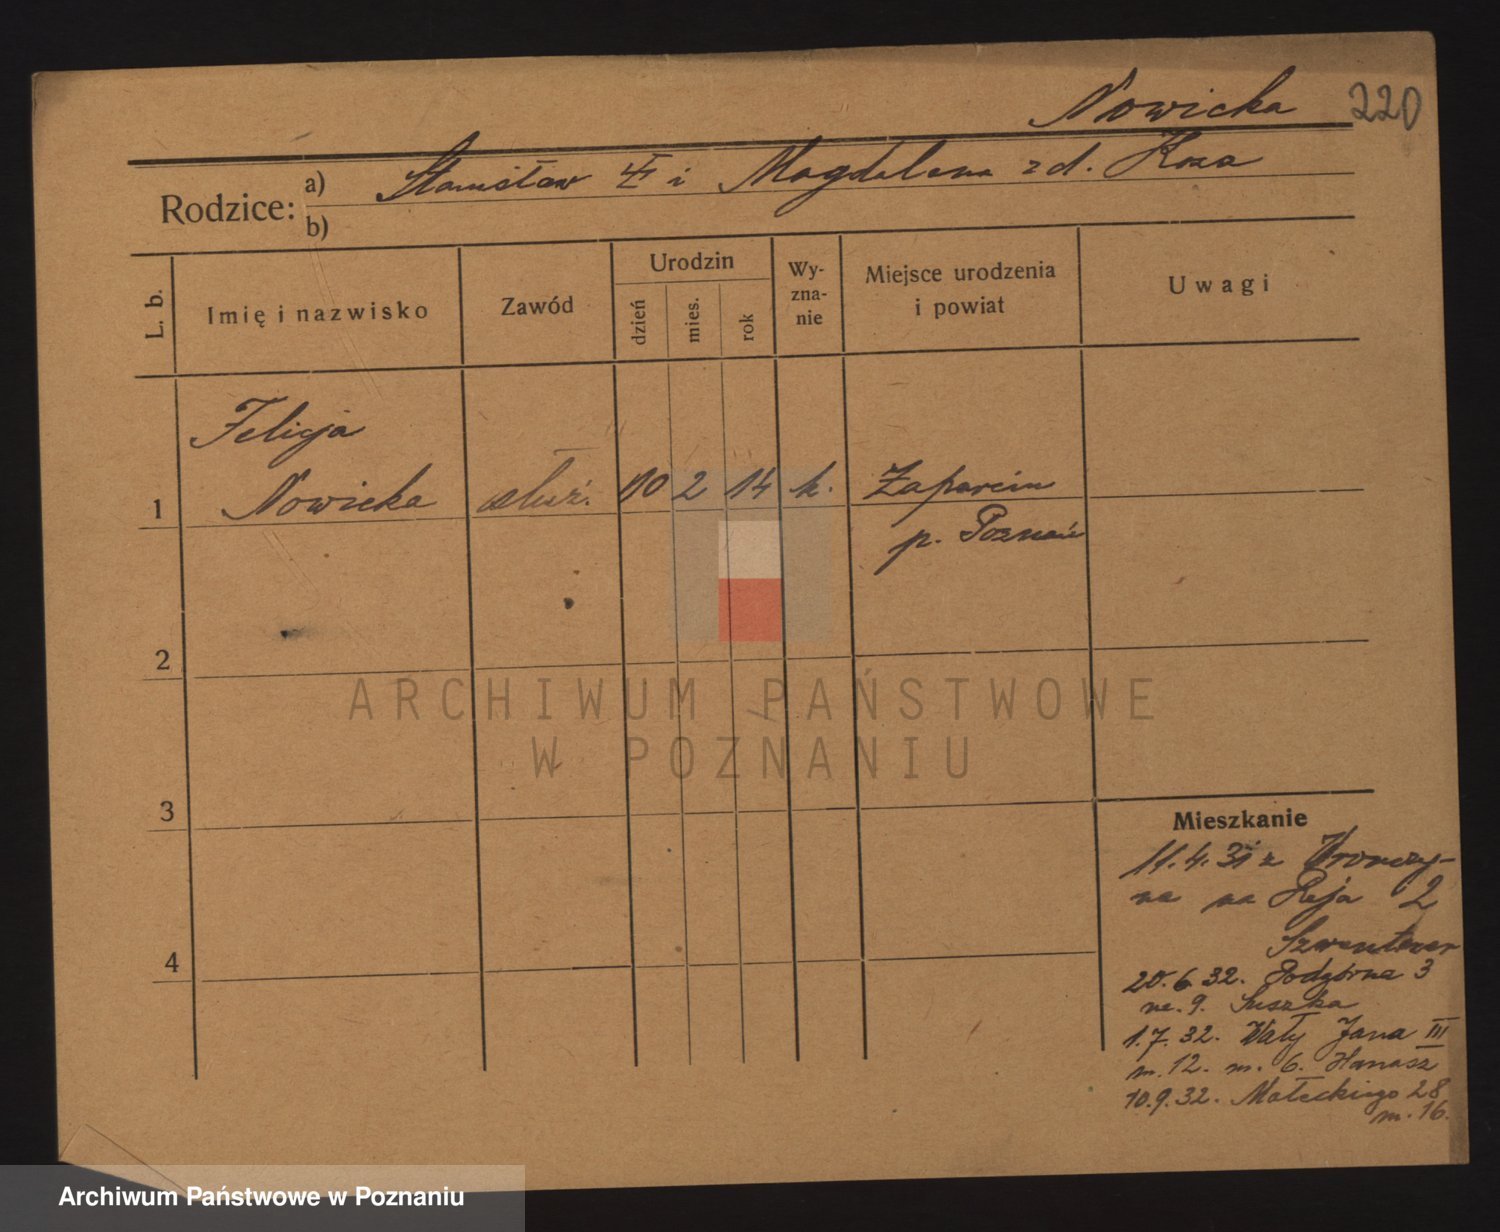 Nowicka 220
Rodzice: a) Stanisław i Magdalena z d. Koza
b)
L. b. Imię i nazwisko Zawód Urodzin dzień mies. rok Wy-zna-nie Miejsce urodzenia i powiat Uwagi
Felicja
1 Nowicka służ. 10 2 14 k. Zaparcin
p. Poznań
2
ARCHIWUM PAŃSTWOWE
W POZNANIU
3
Mieszkanie
11.4.31 z Wronczy-
na na Reja 2
20.6.32. Podgórna 3
m. 9. Suszka
4
1.7.32. Wały Jana III
n. 12. m. 6. Hanasz
10.9.32. Małeckiego 28
m. 16.
Archiwum Państwowe w Poznaniu